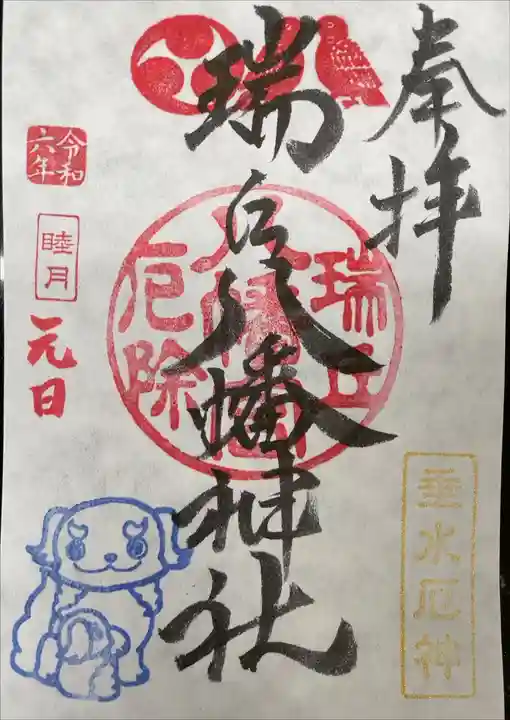 奉拝
瑞丘八幡神社
瑞丘
八幡宮
厄除
令和
六年
睦月
元日
垂水厄神